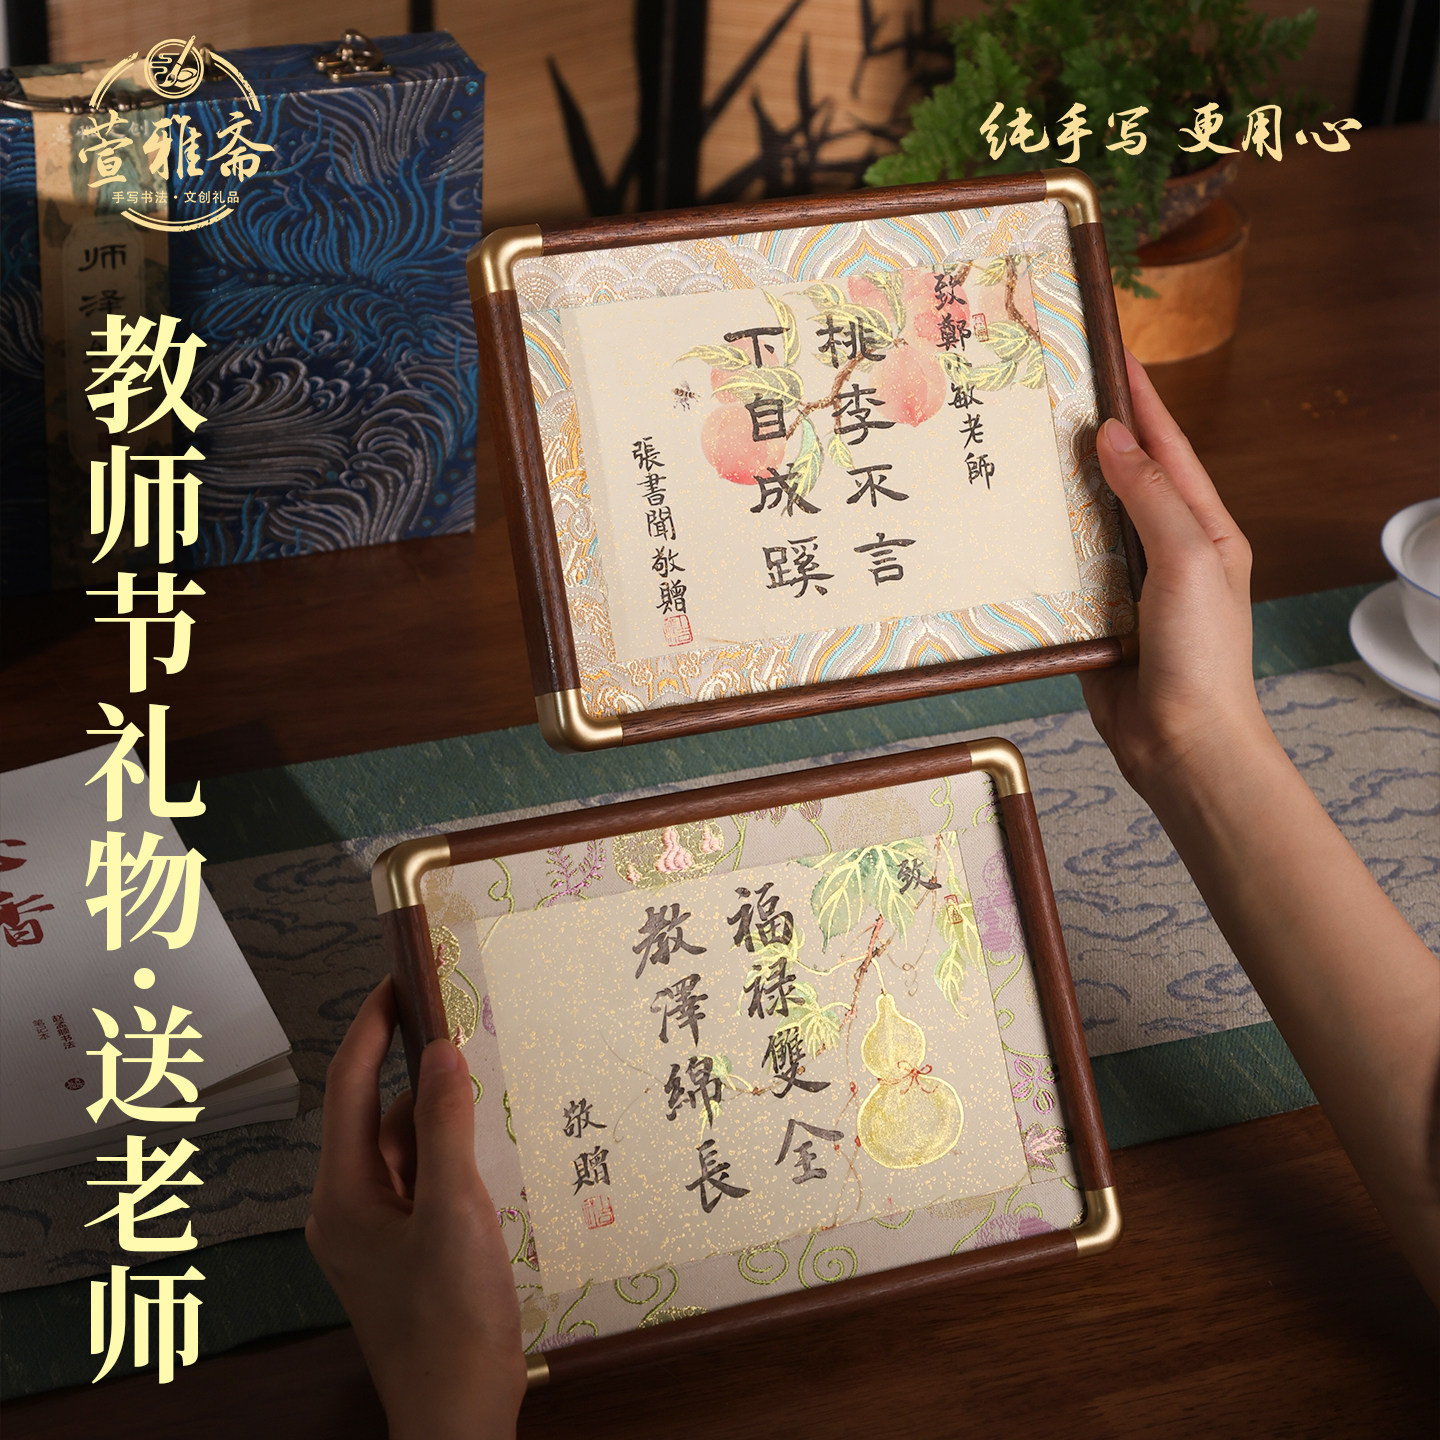 萱雅斋
手写书法·文创礼品
纯手写 更用心
教师节礼物·送老师
师泽
致鄭
敏老師
桃李不言
下自成蹊
張書聞敬贈
致
福禄雙全
教澤綿長
敬贈
香
赵孟頫书法
笔记本